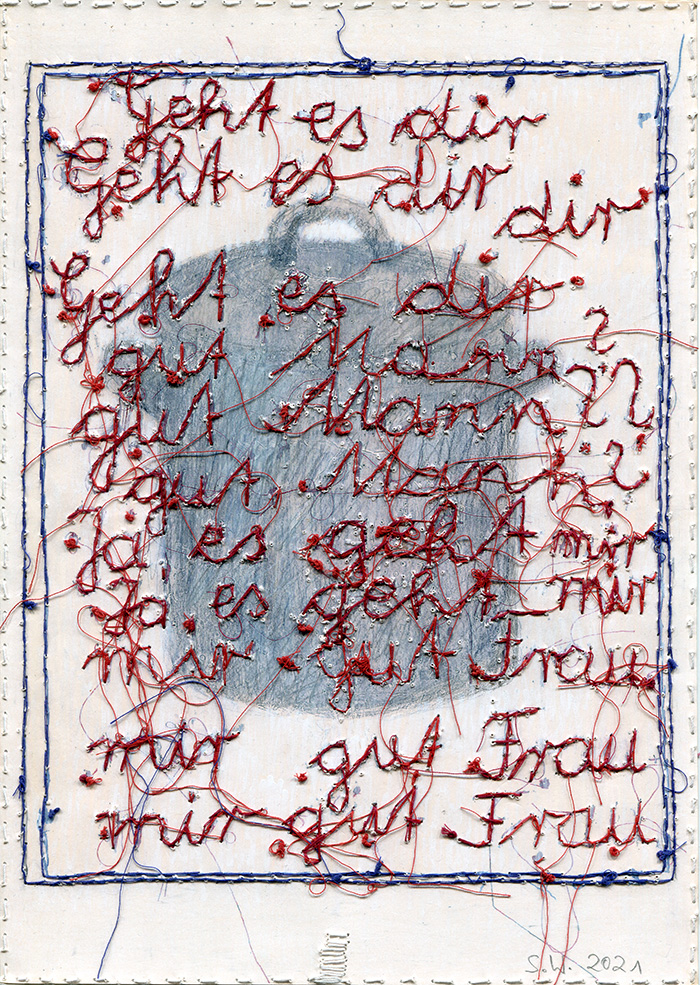 Geht es dir
Geht es dir
dir
Geht es dir
gut Mann?
gut Mann??
gut, Mann?
Ja, es geht mir
Ja es geht mir
mir gut Frau
mir gut Frau
mir gut Frau
S.W. 2021